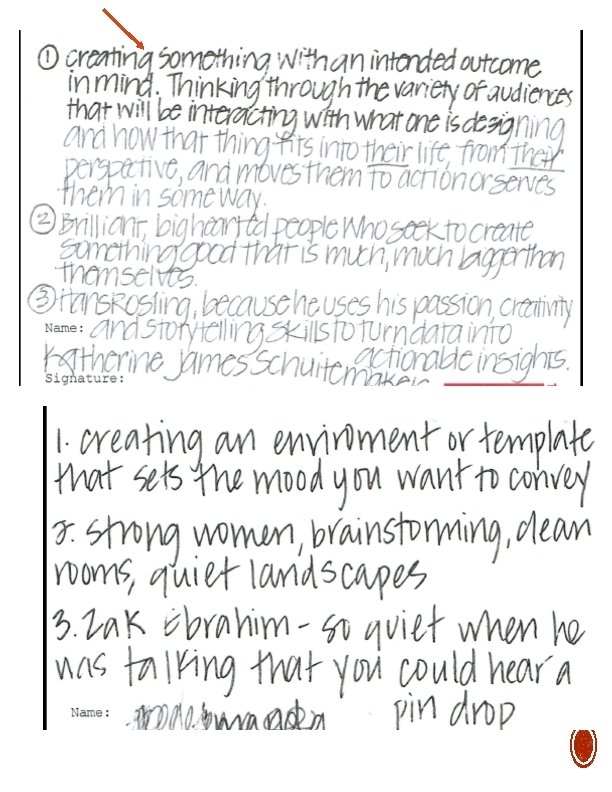 ① creating something with an intended outcome
in mind. Thinking through the variety of audiences
that will be interacting with what one is designing
and how that thing fits into their life, from their
perspective, and moves them to action or serves
them in some way.
② Brilliant, big hearted people who seek to create
something good that is much, much bigger than
themselves.
③ Hans Rosling, because he uses his passion, creativity
Name: and storytelling skills to turn data into
Katherine James Schuitemaker actionable insights.
Signature:
1. creating an enviroment or template
that sets the mood you want to convey
2. strong women, brainstorming, clean
rooms, quiet landscapes
3. Zak Ebrahim - so quiet when he
was talking that you could hear a
pin drop
Name: